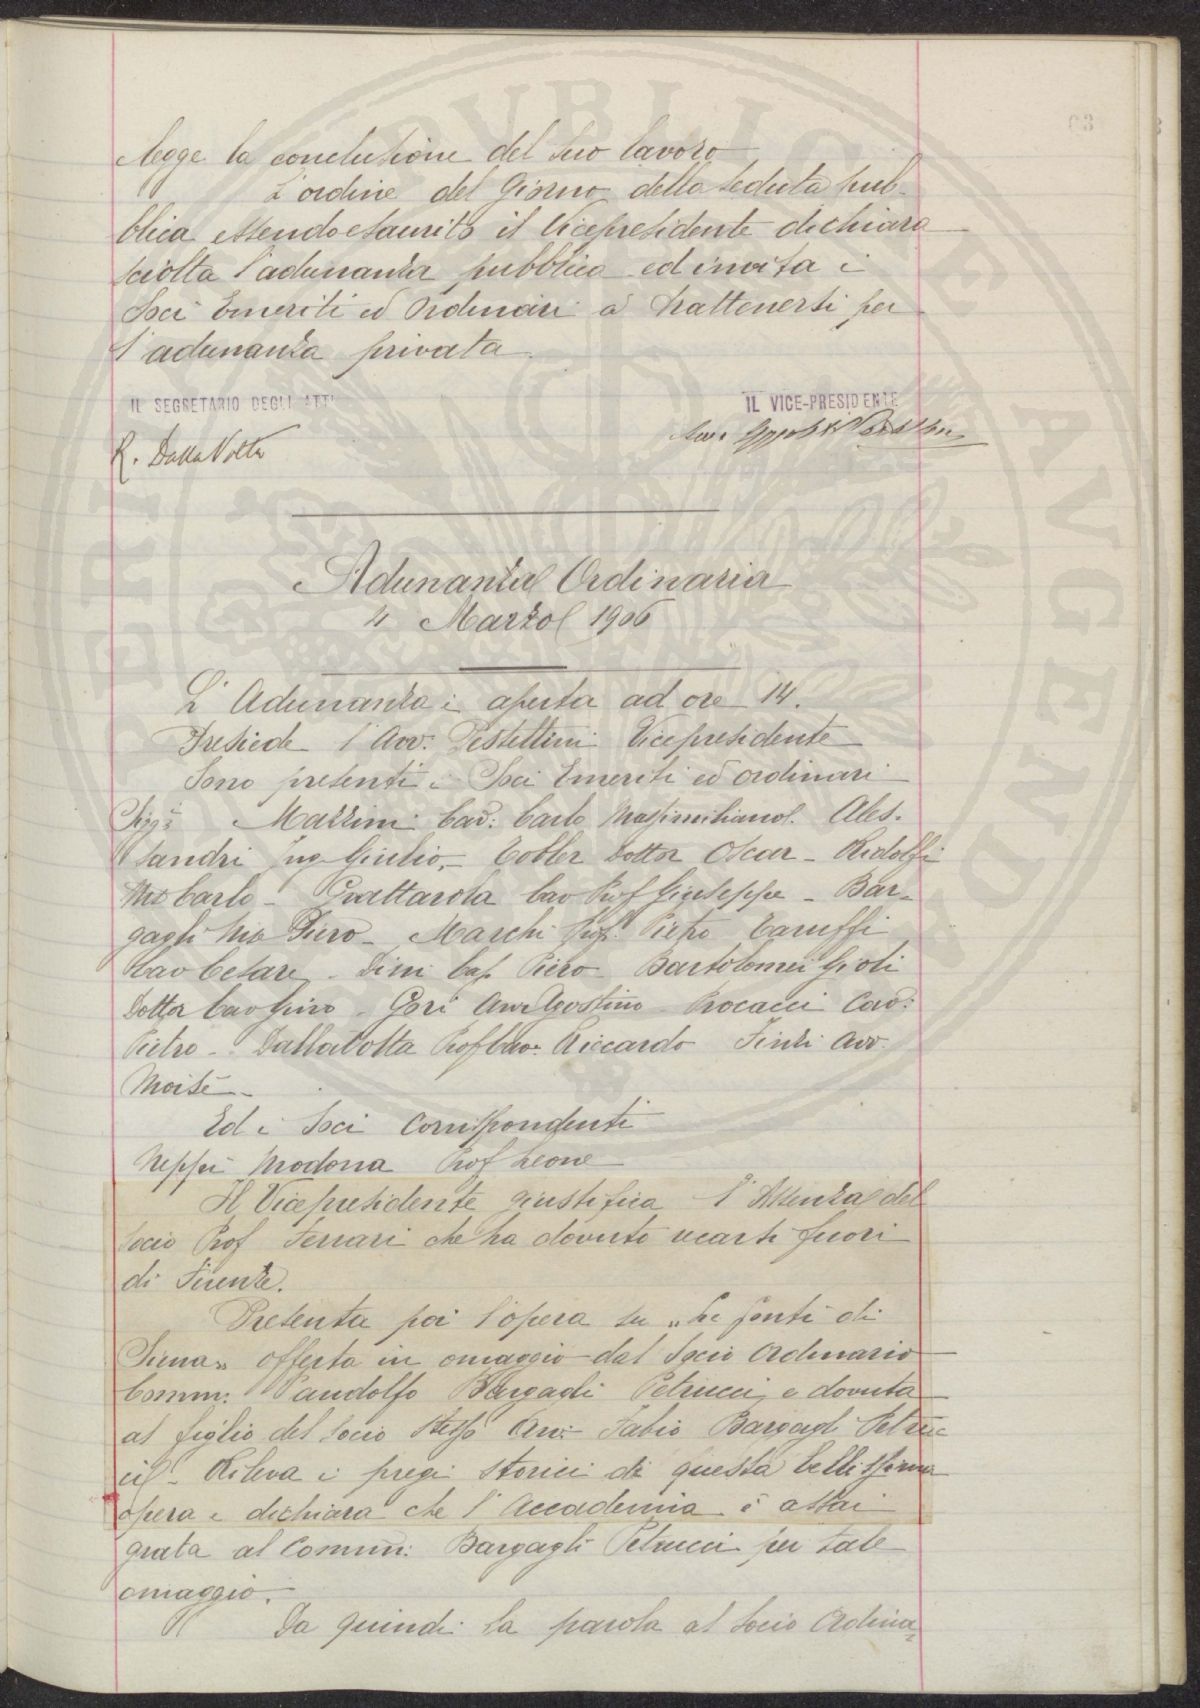 63
legge la conclusione del suo lavoro
L'ordine del Giorno della seduta pub-
blica essendo esaurito il Vicepresidente dichiara
sciolta l'adunanza pubblica ed invita i
Soci Emeriti ed Ordinari a trattenersi per
l'adunanza privata.
IL SEGRETARIO DEGLI ATTI
IL VICE-PRESIDENTE
R. Dalla Volta
Adunanza Ordinaria
4 Marzo 1906
L'Adunanza è aperta ad ore 14.
Presiede l'Avv. Pestellini Vicepresidente
Sono presenti i Soci Emeriti ed ordinari
Sigg.i Mazzini Cav: Carlo Massimiliano. Ales-
sandri Ing Giulio, Tobler Dottor Oscar - Ridolfi
Mse Carlo - Grattarola Cav Prof Giuseppe - Bar-
gagli Mse Piero - Marchi Prof. Pietro Taruffi
Cav Cesare - Dini Cap Piero - Bartolomei Gioli
Dottor Cav Gino - Gori Avv Agostino - Procacci Cav:
Pietro - Dalla Volta Prof Cav. Riccardo Finzi Avv.
Moisè -
Ed i Soci Corrispondenti
Neppi Modona Prof Leone
Il Vicepresidente giustifica l'Assenza del
Socio Prof Ferrari che ha dovuto recarsi fuori
di Firenze.
Presenta poi l'opera su „Le fonti di
Siena„ offerta in omaggio dal Socio Ordinario
Comm: Pandolfo Bargagli Petrucci, e dovuta
al figlio del Socio stesso Avv: Fabio Bargagli Petruc
ci - Rileva i pregi storici di questa bellissima
opera e dichiara che l'Accademia è assai
grata al Comm: Bargagli Petrucci per tale
omaggio.
Da quindi la parola al Socio Ordina-
PVBLICAE AVGENDAE